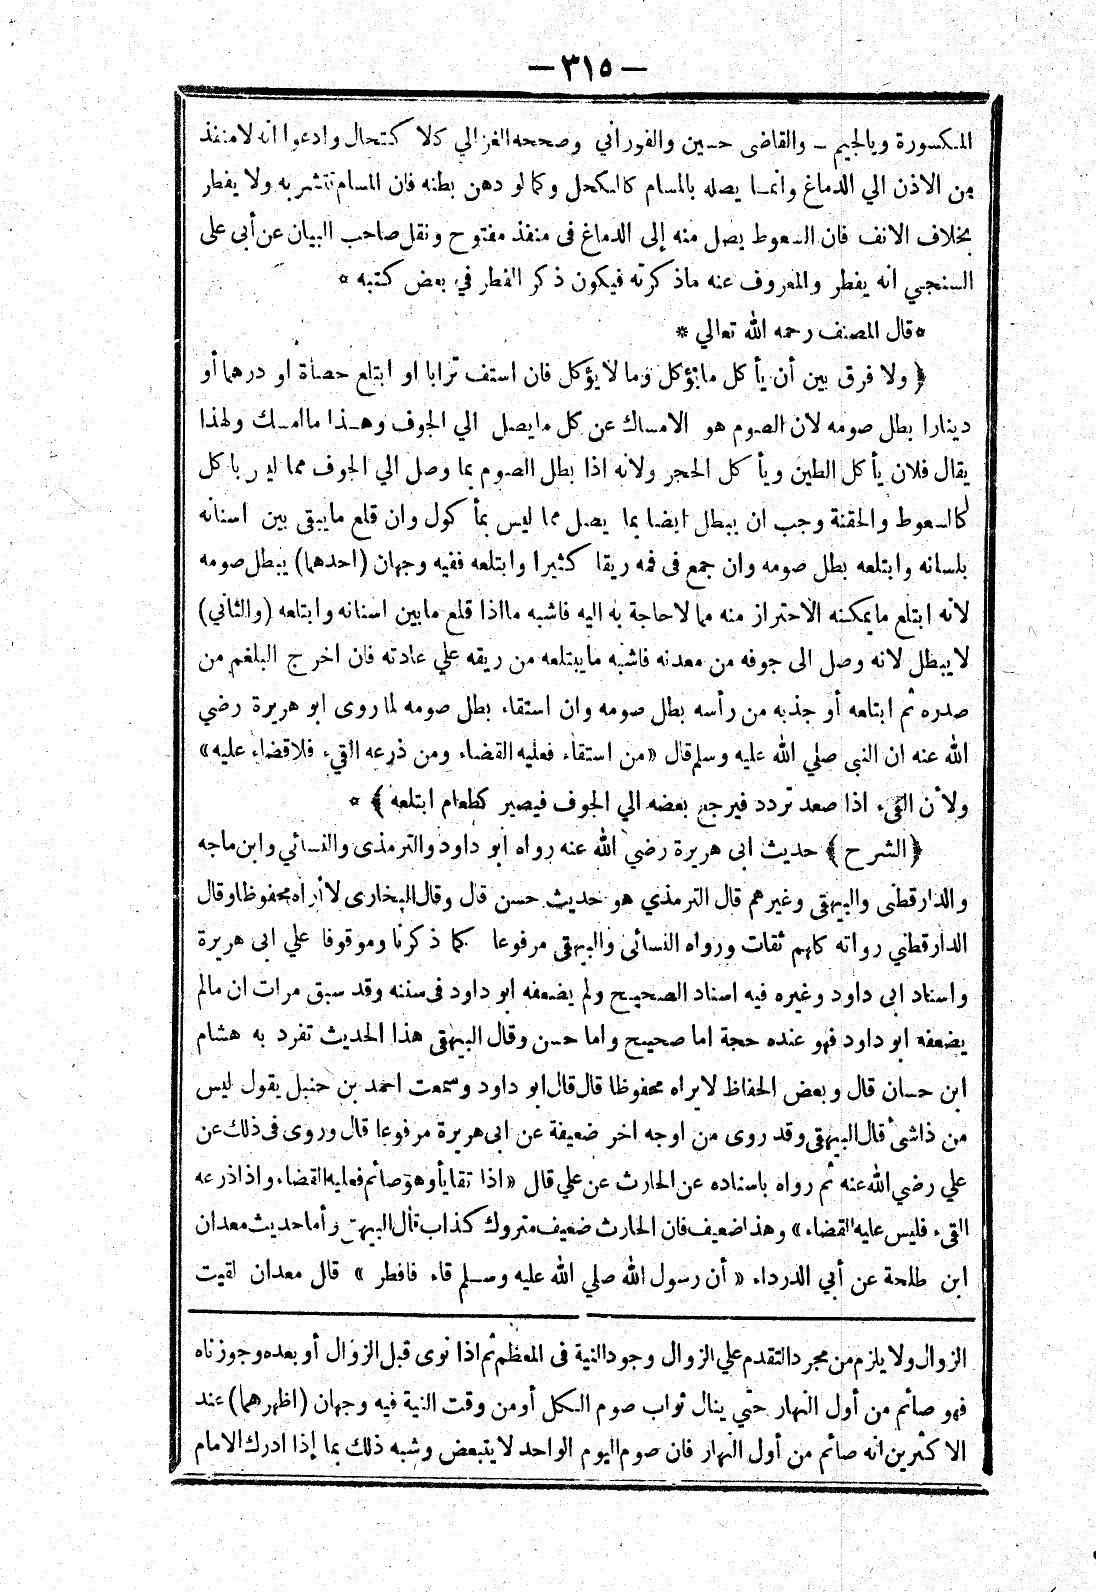 — ٣١٥ —
المكسورة وبالجيم ــ والقاضى حسين والفوراني وصححه الغزالي كالاكتحال وادعوا انه لا منفذ
من الاذن الي الدماغ وانما يصله بالمسام كالكحل وكما لو دهن بطنه فان المسام تتشربه ولا يفطر
بخلاف الانف فان السعوط يصل منه إلى الدماغ فى منفذ مفتوح ونقل صاحب البيان عن أبى على
السنجي انه يفطر والمعروف عنه ما ذكرته فيكون ذكر الفطر في بعض كتبه *
* قال المصنف رحمه الله تعالي *
﴿ ولا فرق بين أن يأكل ما يؤكل وما لا يؤكل فان استف ترابا او ابتلع حصاة او درهما أو
دينارا بطل صومه لان الصوم هو الامساك عن كل ما يصل الي الجوف وهذا ما امسك ولهذا
يقال فلان يأكل الطين ويأكل الحجر ولانه اذا بطل الصوم بما وصل الي الجوف مما ليس باكل
كالسعوط والحقنة وجب ان يبطل ايضا بما يصل مما ليس بمأكول وان قلع ما يبقى بين اسنانه
بلسانه وابتلعه بطل صومه وان جمع فى فمه ريقا كثيرا وابتلعه ففيه وجهان (احدهما) يبطل صومه
لانه ابتلع ما يمكنه الاحتراز منه مما لا حاجة به اليه فاشبه ما اذا قلع ما بين اسنانه وابتلعه (والثاني)
لا يبطل لانه وصل الى جوفه من معدنه فاشبه ما يبتلعه من ريقه علي عادته فان اخرج البلغم من
صدره ثم ابتلعه أو جذبه من رأسه بطل صومه وان استقاء بطل صومه لما روى ابو هريرة رضي
الله عنه ان النبى صلي الله عليه وسلم قال «من استقاء فعليه القضاء ومن ذرعه القيء فلا قضاء عليه»
ولأن القيء اذا صعد تردد فيرجع بعضه الي الجوف فيصير كطعام ابتلعه ﴾ *
﴿ الشرح ﴾ حديث ابى هريرة رضي الله عنه رواه ابو داود والترمذى والنسائي وابن ماجه
والدارقطنى والبيهقى وغيرهم قال الترمذي هو حديث حسن قال وقال البخارى لا أراه محفوظا وقال
الدارقطني رواته كلهم ثقات ورواه النسائى والبيهقى مرفوعا كما ذكرنا وموقوفا علي ابى هريرة
واسناد ابى داود وغيره فيه اسناد الصحيح ولم يضعفه ابو داود فى سننه وقد سبق مرات ان مالم
يضعفه ابو داود فهو عنده حجة اما صحيح واما حسن وقال البيهقى هذا الحديث تفرد به هشام
ابن حسان قال وبعض الحفاظ لا يراه محفوظا قال قال ابو داود وسمعت احمد بن حنبل يقول ليس
من ذا شئ قال البيهقى وقد روى من اوجه اخر ضعيفة عن ابى هريرة مرفوعا قال وروى فى ذلك عن
علي رضي الله عنه ثم رواه باسناده عن الحارث عن علي قال «اذا تقايأ وهو صائم فعليه القضاء واذا ذرعه
القيء فليس عليه القضاء» وهذا ضعيف فان الحارث ضعيف متروك كذاب قال البيهقى وأما حديث معدان
ابن طلحة عن أبي الدرداء «أن رسول الله صلي الله عليه وسلم قاء فافطر» قال معدان لقيت
الزوال ولا يلزم من مجرد التقدم علي الزوال وجود النية فى المعظم ثم اذا نوى قبل الزوال أو بعده وجوزناه
فهو صائم من أول النهار حتي ينال ثواب صوم الكل أو من وقت النية فيه وجهان (اظهرهما) عند
الاكثرين انه صائم من أول النهار فان صوم اليوم الواحد لا يتبعض وشبه ذلك بما إذا ادرك الامام